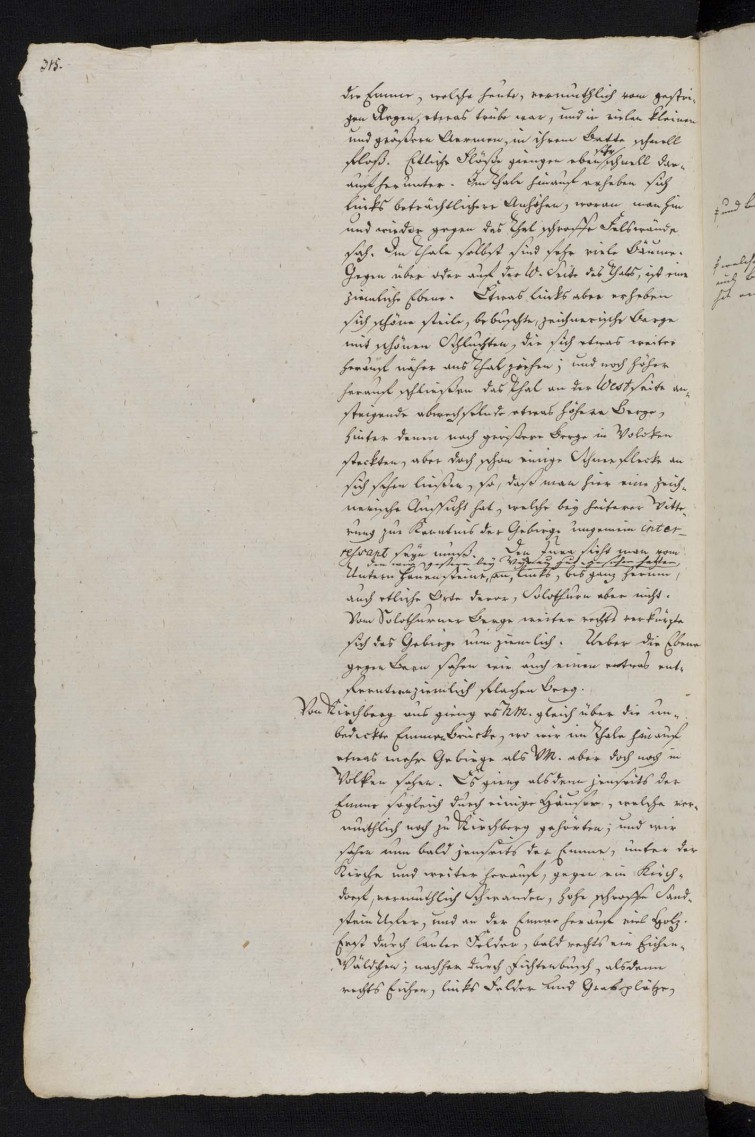 315.
die Emme, welche heute, vermuthlich vom gestri-
gen Regen, etwas trübe war, und in vielen kleinen
und größern Aermen, in ihrem Bette schnell
floß. Etliche Flöße giengen eben sehr schnell dar-
auf herunter. Im Thale hinauf erheben sich
links beträchtlichere Anhöhen, woran man hin
und wieder gegen das Thal schroffe Felswände
sah. Im Thale selbst sind sehr viele Bäume.
Gegen über oder auf der W. Seite des Thals, ist eine
ziemliche Ebene. Etwas links aber erheben
sich schöne steile, bebuschte, zeichnerische Berge
mit schönen Schluchten, die sich etwas weiter
herauf näher ans Thal ziehen; und noch höher
herauf schließen das Thal an der Westseite an-
steigende abwechselnde etwas höhere Berge,
hinter denen noch größere Berge in Wolcken
steckten, aber doch schon einige Schneeflecke an
sich sehen ließen, so, daß man hier eine zeich-
nerische Aussicht hat, welche bey heiterer Witte-
rung zur Kenntnis der Gebirge ungemein inter-
ressant seyn muß. Den Jura sieht man vom
den wir gestern bey gesehen hatten
Untern Hauensteine, an, links, bis ganz herum,
auch etliche Orte davor, Solothurn aber nicht.
Vom Solothurner Berge weiter rechts verkürzte
sich das Gebirge nun ziemlich. Ueber die Ebene
gegen Bern sahen wir auch einen etwas ent-
fernten ziemlich flachen Berg.
Von Kirchberg aus gieng es NM. gleich über die un-
bedeckte Emme-Brücke, wo wir im Thale hinauf
etwas mehr Gebirge als VM. aber doch noch in
Wolken sahen. Es gieng alsdenn jenseits der
Emme sogleich durch einige Häuser, welche ver-
muthlich noch zu Kirchberg gehörten; und wir
sahen nun bald jenseits der Emme, unter der
Kirche und weiter herauf, gegen ein Kirch-
dorf, vermuthlich Schwanden, hohe schroffe Sand-
stein Ufer, und an der Emme herauf viel Holz.
Erst durch lauter Felder, bald rechts ein Eichen-
Wäldchen; nachher durch Fichtenbusch, alsdenn
rechts Eichen, links Felder und Grasplätze,